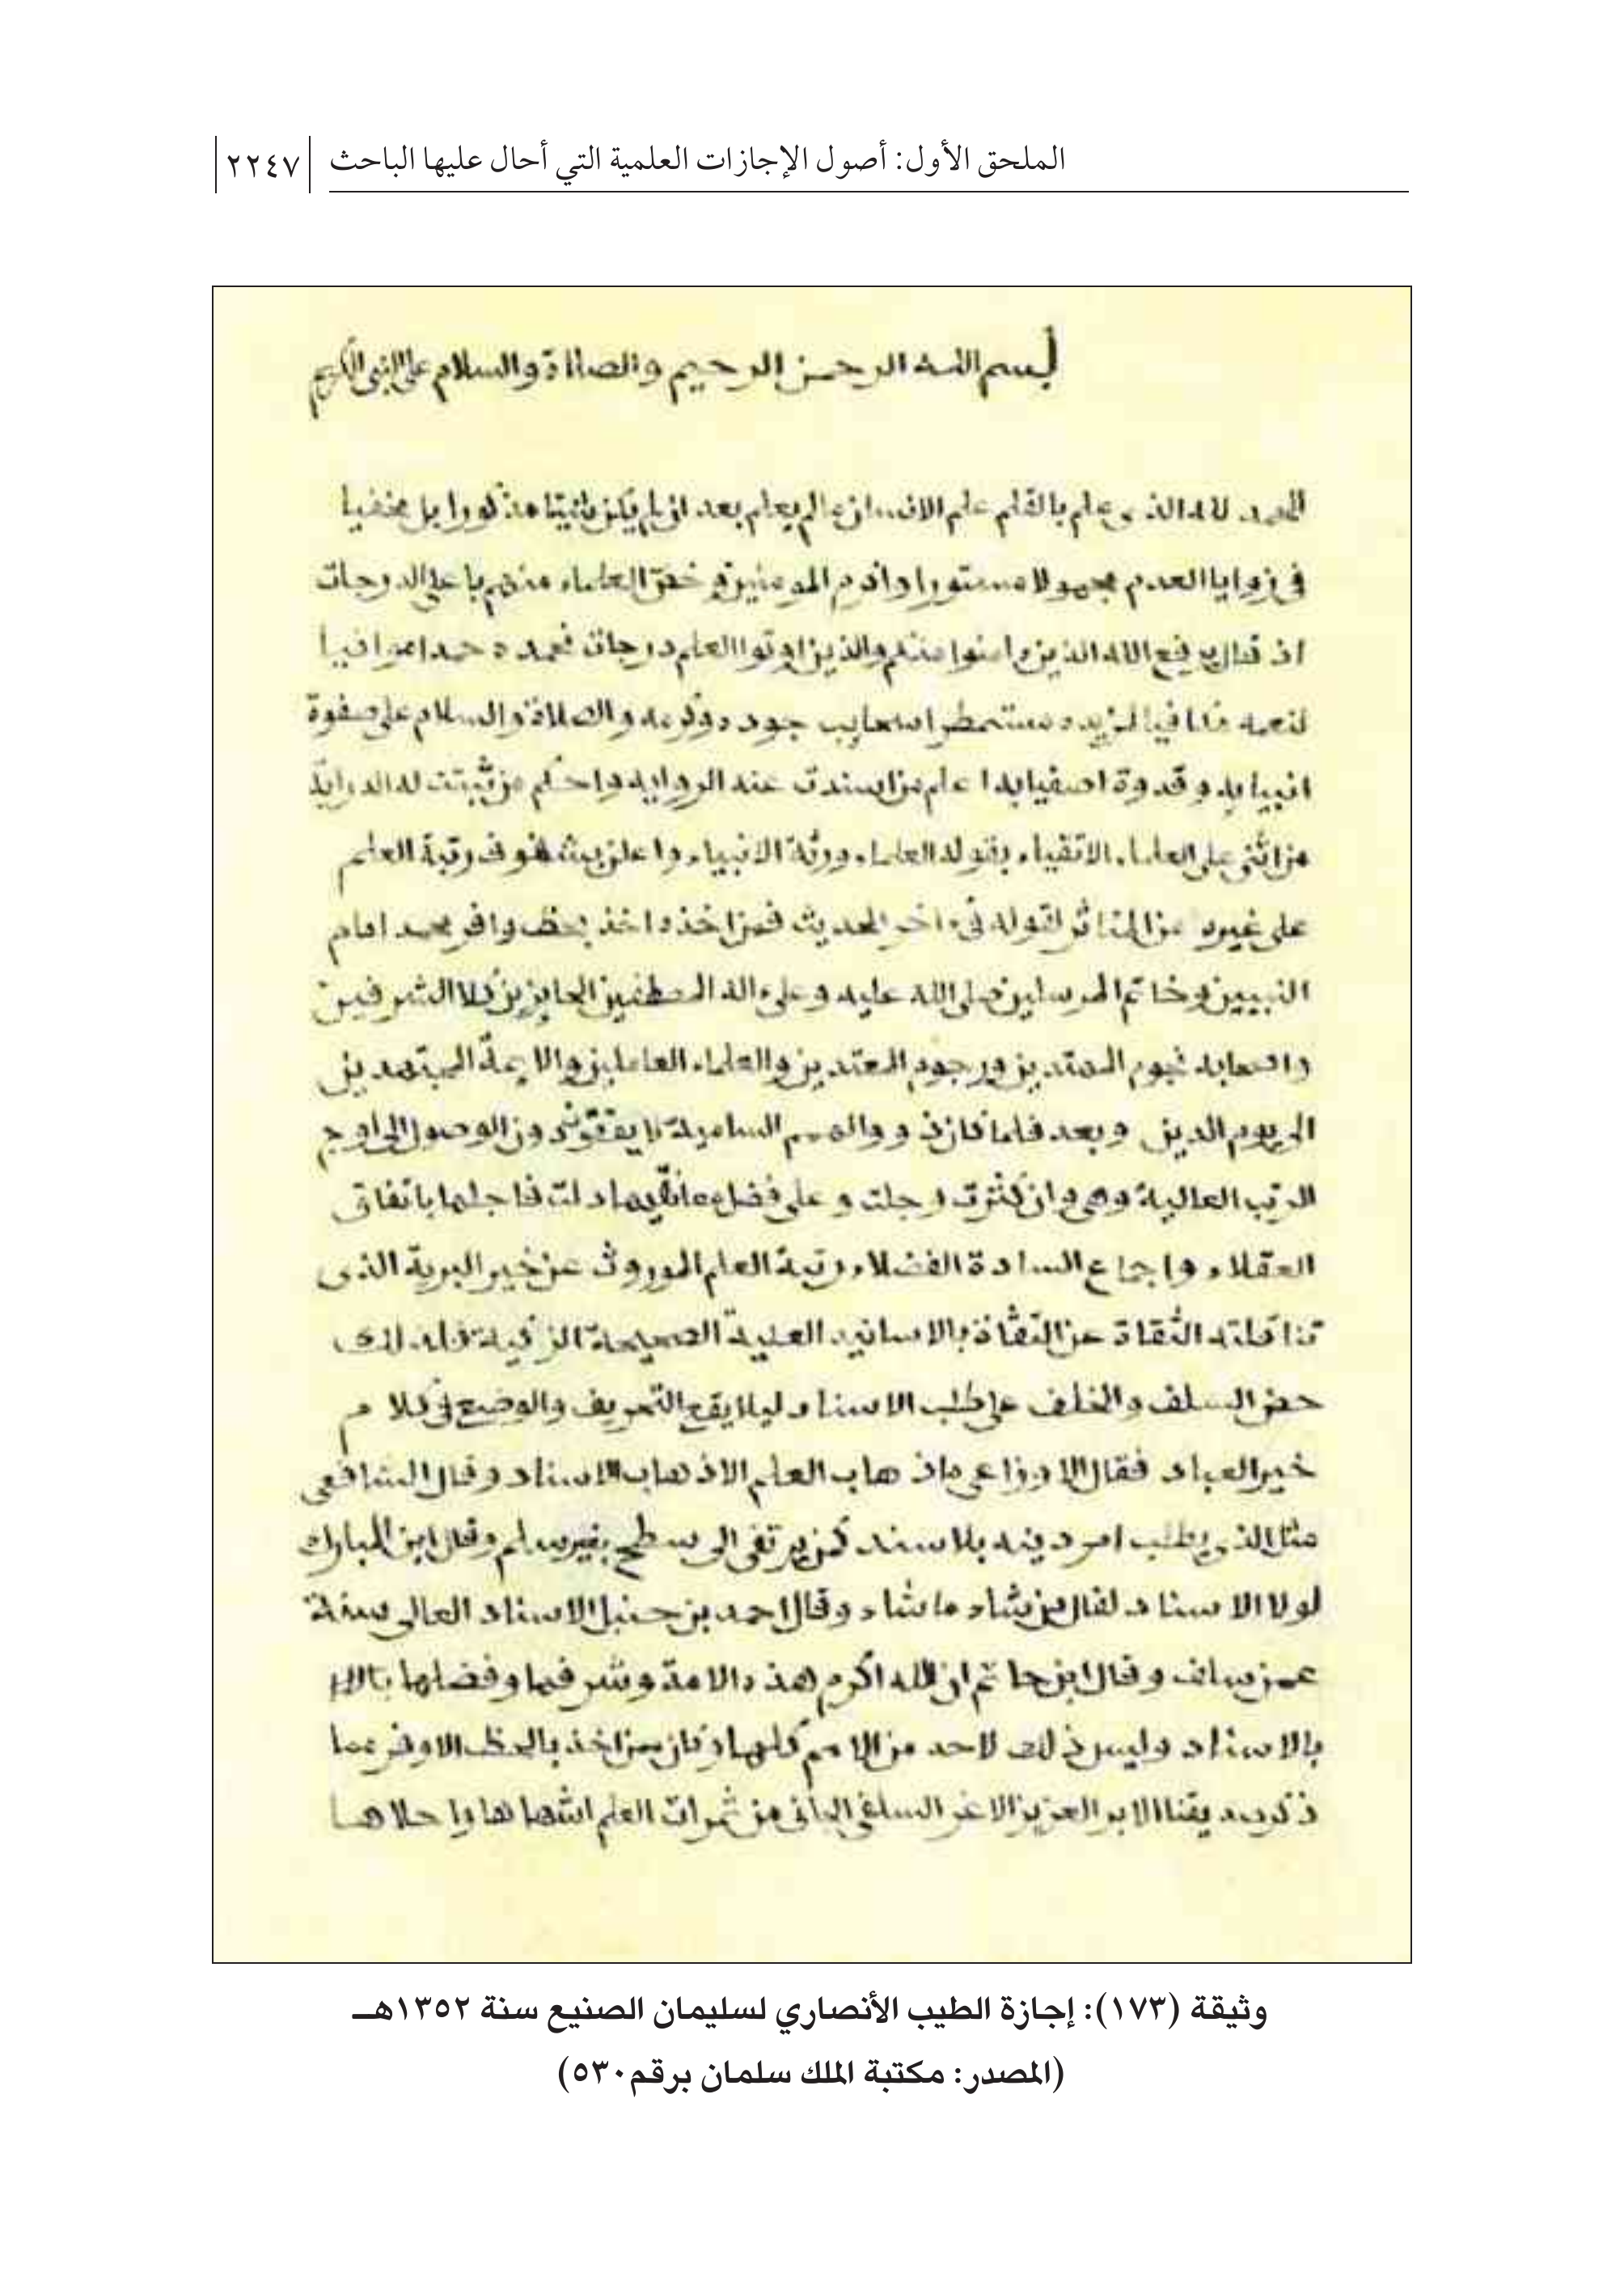 الملحق الأول: أصول الإجازات العلمية التي أحال عليها الباحث
٢٢٤٧
بسم الله الرحمن الرحيم والصلاة والسلام على النبي الكريم
الحمد لله الذى علم بالقلم علم الانسان ما لم يعلم بعد ان لم يكن شيئا مذكورا بل مخفيا
فى زوايا العدم مجهولا مستورا واكرم المومنين وخص العلماء منهم باعلى الدرجات
اذ قال يرفع الله الذين ءامنوا منكم والذين اوتوا العلم درجات فحمده حمدا موافيا
لنعمه مكافيا لمزيده مستمطرا سحايب جوده وكرمه والصلاة والسلام على صفوة
انبيايه وقدوة اصفيايه اعلم من اسندت عنه الروايه واحكم من ثبتت له الدرايه
من اثنى على العلماء الاتقياء بقوله العلماء ورثة الانبياء واعلن بشفوف رتبة العلم
على غيره من المئاثر لقوله فى ءاخر الحديث فمن اخذه اخذ بحظ وافر محمد امام
النبيين وخاتم المرسلين صلى الله عليه وعلى ءاله المصطفين الحايزين كلا الشرفين
واصحابه نجوم المهتدين ورجوم المعتدين والعلماء العاملين والايمة المجتهدين
الى يوم الدين وبعد فلما كان ذوو الهمم السامية لا يقفون دون الوصول الى اوج
الرتب العالية وهى وان كثرت وجلت وعلى فضل دلت فاجلها باتفاق
العقلاء واجماع السادة الفضلاء رتبة العلم الموروث عن خير البرية الذى
تناقلته الثقاة عن الثقاة بالاسانيد العلية الصحيحة الزكية فلذلك
حض السلف والخلف على طلب الاسناد ليلا يقع التحريف والوضع فى كلام
خير العباد فقال الاوزاعى ما ذهاب العلم الا ذهاب الاسناد وقال الشافعى
مثل الذى يطلب امر دينه بلا سند كمن يرتقى الى سطح بغير سلم وقال ابن المبارك
لولا الاسناد لقال من شاء ما شاء وقال احمد بن حنبل الاسناد العالى سنة
عمن سلف وقال ابن حاتم ان الله اكرم هذه الامة وشرفها وفضلها
بالاسناد وليس ذلك لاحد من الامم كلها وكان ممن اخذ بالحظ الاوفر مما
ذكر صديقنا الابر العزيز الاغر السلفى الجانى من ثمرات العلم اشهاها واحلاها
وثيقة (١٧٣): إجازة الطيب الأنصاري لسليمان الصنيع سنة ١٣٥٢هـ
(المصدر: مكتبة الملك سلمان برقم٥٣٠)